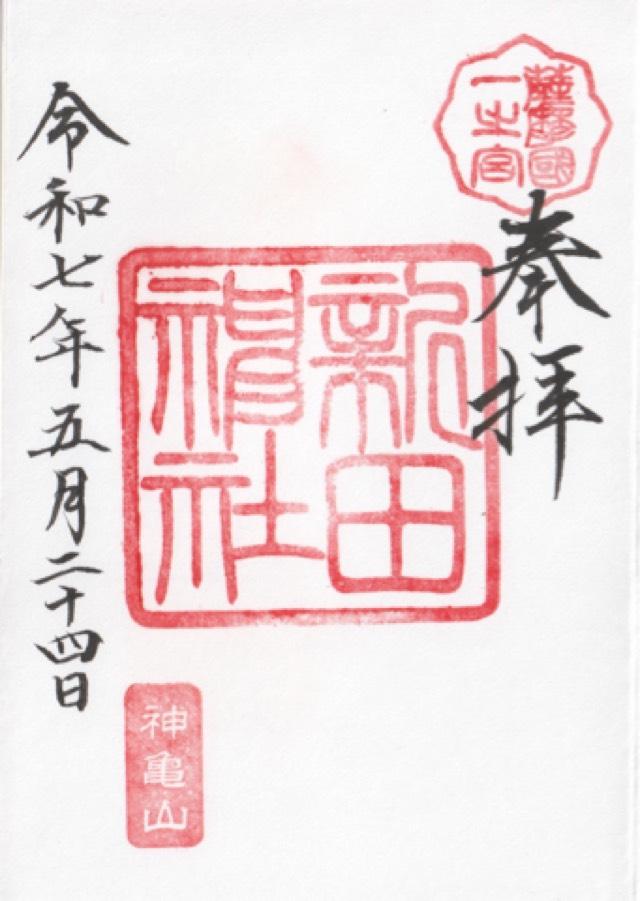 薩摩國
一之宮
奉拝
新田
神社
令和七年五月二十四日
神亀山